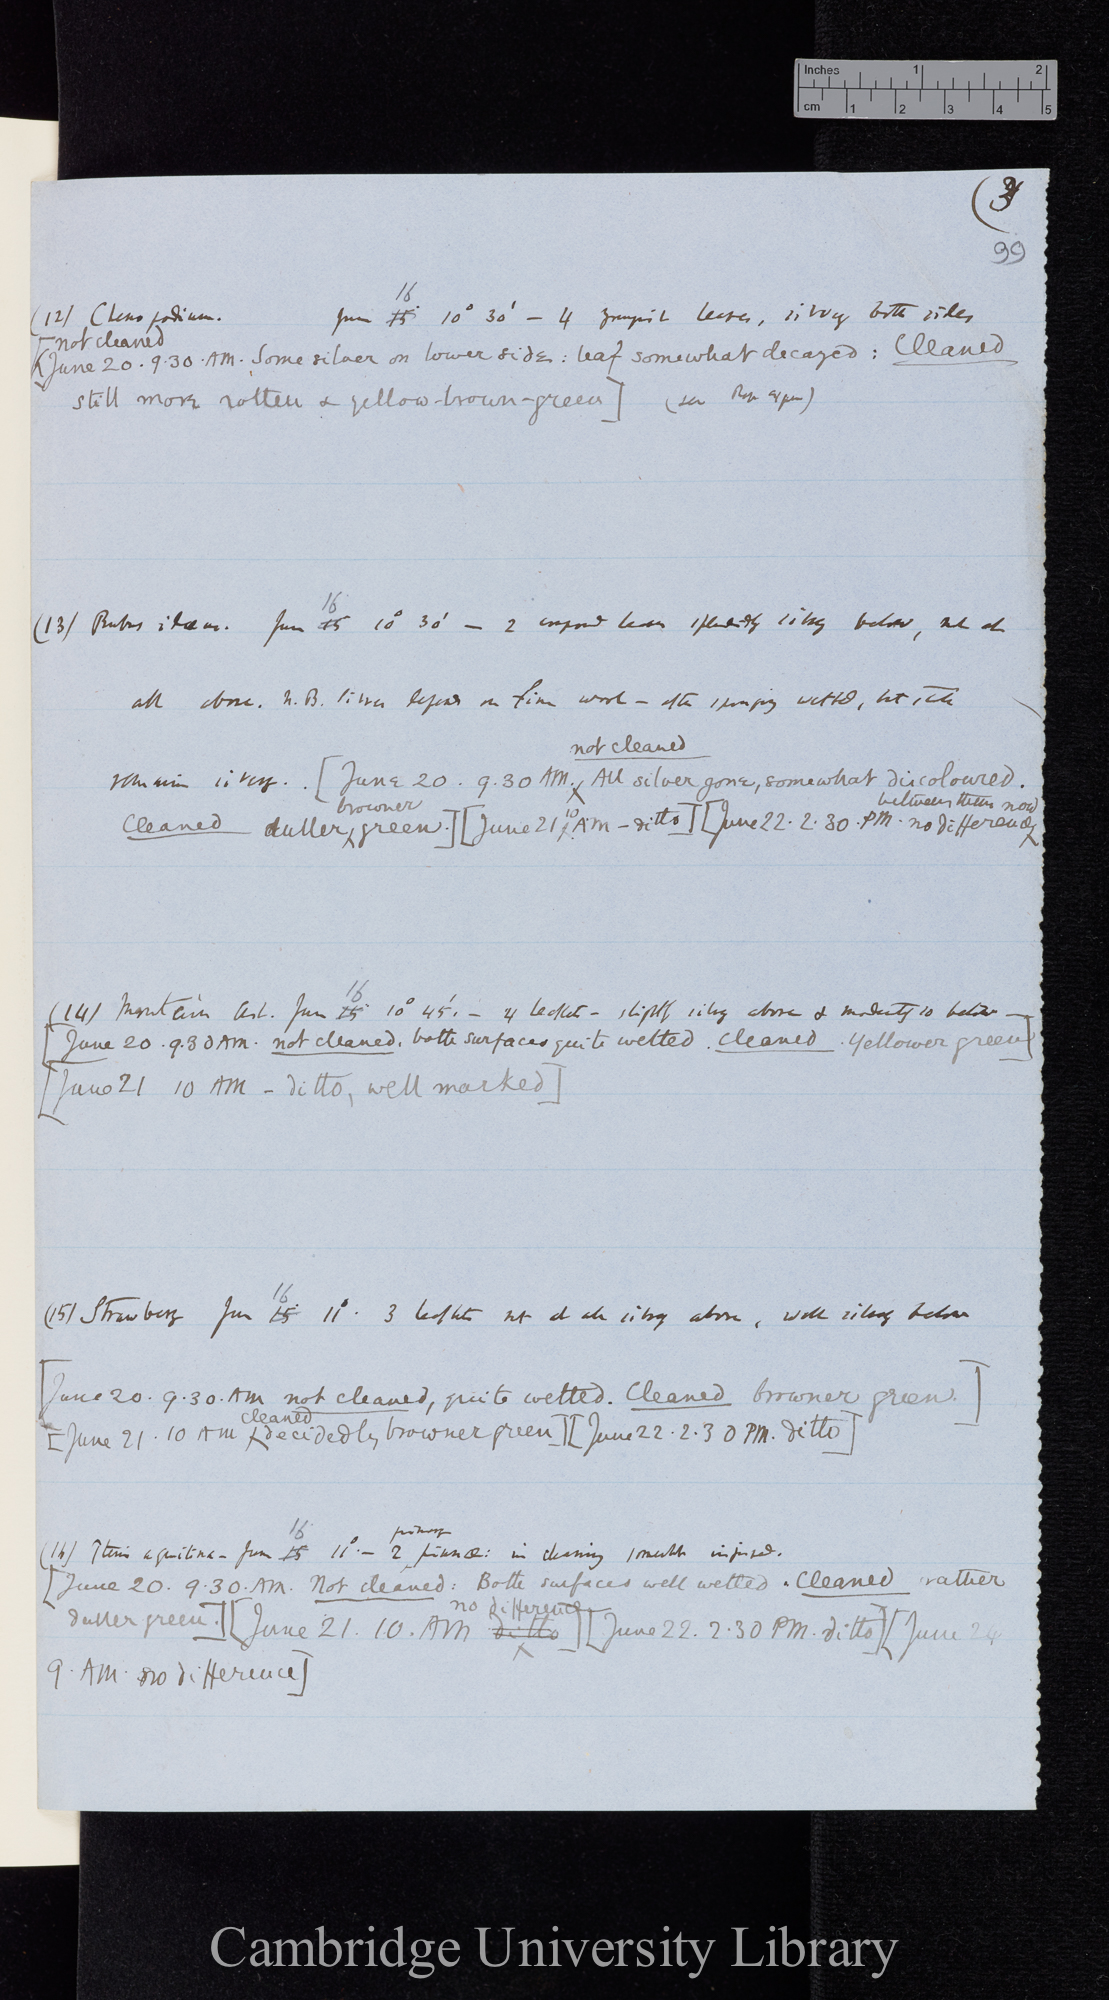 Inches 1 2
cm 1 2 3 4 5
(3
99
16
(12) Chenopodium. June 15 10° 30' — 4 youngish leaves, silvery both sides
not cleaned
[June 20. 9.30. AM. Some silver on lower side: leaf somewhat decayed: Cleaned
still more rotten & yellow-brown-green] (see
16
(13) Rubus idæus. June 15 10° 30' — 2 compound leaves splendidly silvery below, not at
all above. N.B. Silver depends on fine wool — after sponging wetted, but
remain silvery. [June 20. 9.30 AM. not cleaned All silver gone, somewhat discoloured.
Cleaned duller browner green.] [June 21 10 AM — ditto] [June 22. 2.30. PM. no difference between them now
16
(14) Mountain Ash. June 15 10° 45'. — 4 leaflets — slightly silvery above & moderately so below —
[June 20. 9.30 AM. not cleaned. both surfaces quite wetted. Cleaned. Yellower green]
[June 21 10 AM — ditto, well marked]
16
(15) Strawberry June 15 11°. 3 leaflets not at all silvery above, well silvery below
[June 20. 9.30. AM not cleaned, quite wetted. Cleaned browner green.]
[June 21. 10 AM cleaned decidedly browner green] [June 22. 2.30 PM. ditto]
16
(16) Pteris aquilina — June 15 11°. — 2 primary pinnæ: in cleaning somewhat injured.
[June 20. 9.30. AM. Not cleaned: Both surfaces well wetted. Cleaned rather
duller green.] [June 21. 10. AM ditto no difference] [June 22. 2.30 PM. ditto] [June 24
9. AM. no difference]
Cambridge University Library